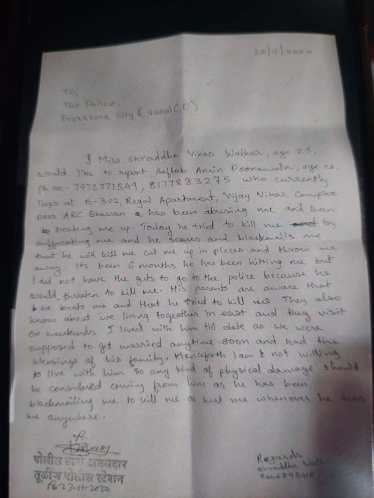 To,
The Police,
I Miss Shraddha Vikas Walkar, age 25,
would like to report Aaftab Amin Poonawala, age
ph no-
who currently
lives at B-302, Regal Apartment, Vijay Vihar Complex
near ARC Bhavan has been abusing me and been
beating me up. Today he tried to kill me by
suffocating me and he scares and blackmails me
that he will kill me cut me up in pieces and throw me
away. Its been 6 months he has been hitting me but
I did not have the guts to go to the police because he
would threaten to kill me. His parents are aware that
he beats me and that he tried to kill me. They also
know about we living together in east and they visit
on weekends. I lived with him till date as we were
supposed to get married anytime soon and had the
blessings of his family. Henceforth I am not willing
to live with him so any kind of physical damage should
be considered coming from him as he has been
blackmailing me to kill me or hurt me whenever he sees
me anywhere.
Regards
पोलीस ठाणे अंमलदार
तुळींज पोलीस स्टेशन